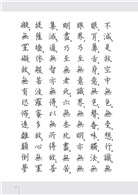 不減是故空中無色無受想行識無
眼耳鼻舌身意無色聲香味觸法無
眼界乃至無意識界無無明亦無無
明盡乃至無老死亦無老死盡無苦
集滅道無智亦無得以無所得故菩
提薩埵依般若波羅蜜多故心無罣
礙無罣礙故無有恐怖遠離顛倒夢